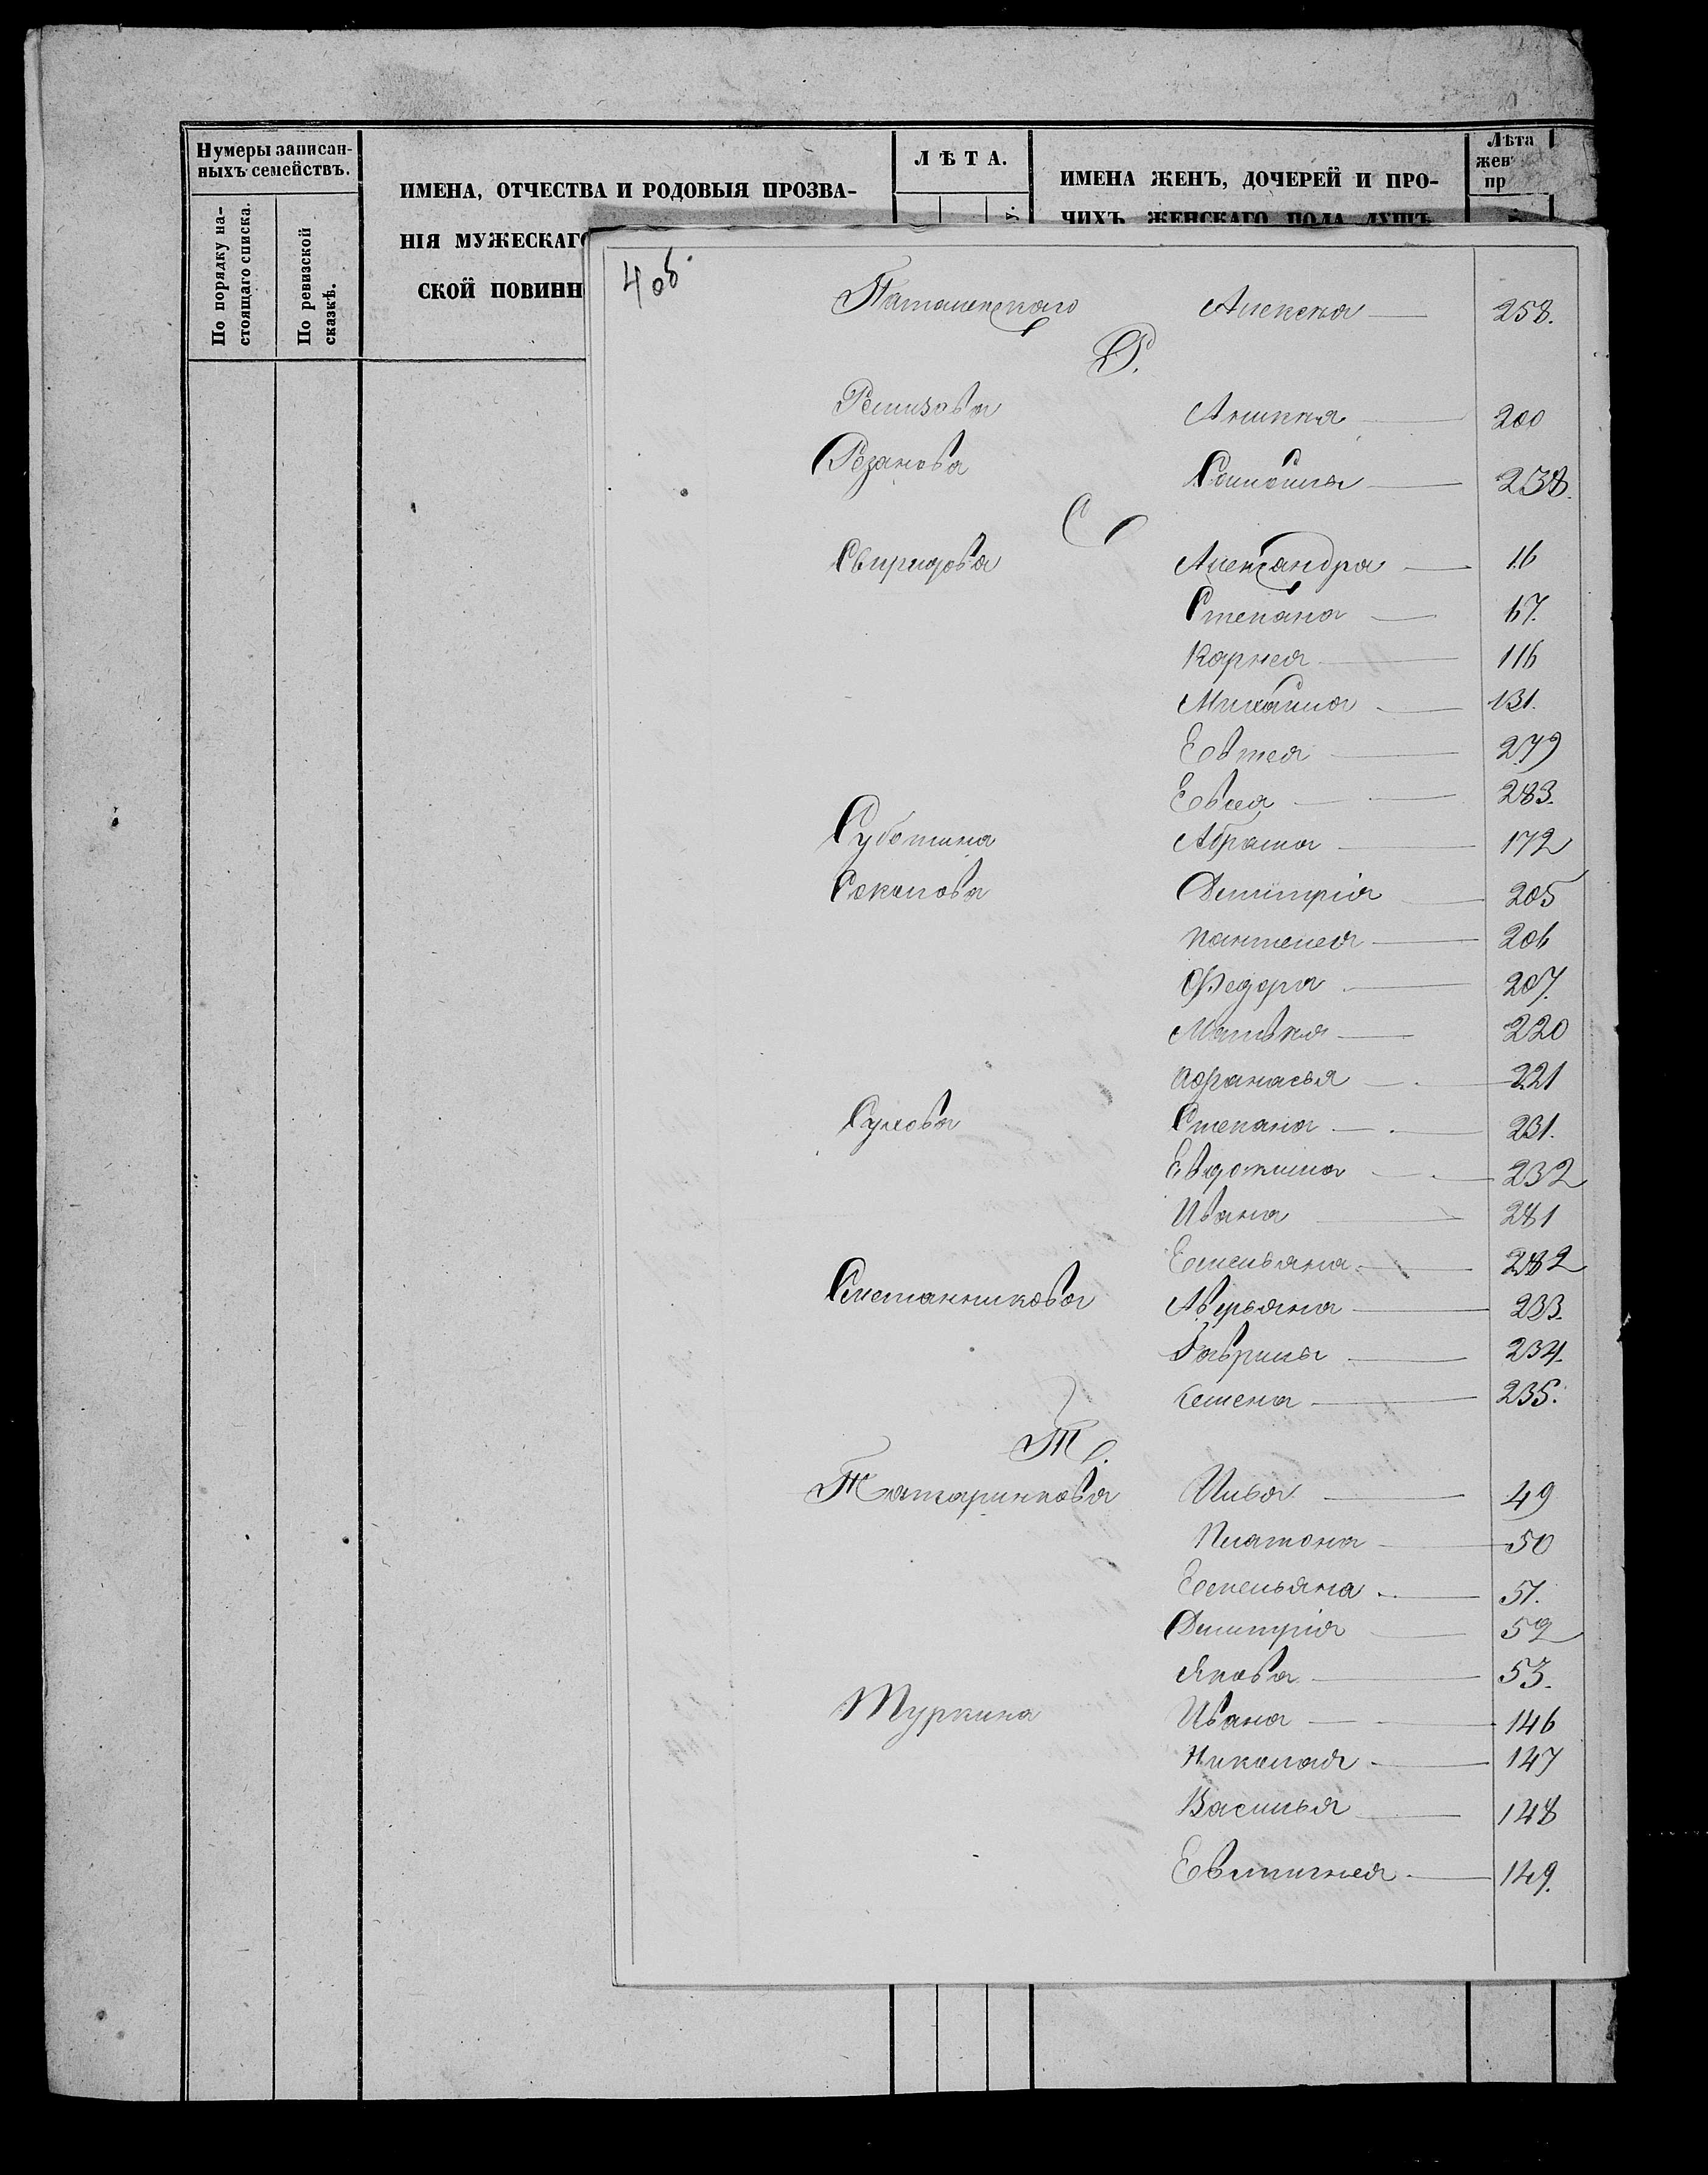 Нумеры записан-
ныхъ семействъ.
По порядку на-
стоящаго списка.
По ревизской
сказкѣ.
ИМЕНА, ОТЧЕСТВА И РОДОВЫЯ ПРОЗВА-
НІЯ МУЖЕСКАГО
СКОЙ ПОВИНН
ЛѢТА.
У.
ИМЕНА ЖЕНЪ, ДОЧЕРЕЙ И ПРО-
ЧИХЪ ЖЕНСКАГО ПОЛА ДУШЪ
Лѣта
жен
пр
4 об.
258.
Р.
Ремизова Аникия 200
Резанова Самойла 238.
С
Свиридова Александра 16
Степана 67.
Карнея 116
Михайла 131.
Евтея 279
283.
Суботина Абрама 172
Соколова Димитрія 205
Пантелея 206
Федора 207.
220
Афанасья 221
Сухова Степана 231.
Евдокима 232
Ивана 281
Емельяна 282
Сметанникова Аверьяна 233.
Гаврилы 234.
Семена 235.
Т.
Татаринкова Ильи 49
Платона 50
Емельяна 51.
Димитрія 52
Якова 53.
Туркина Ивана 146
Николая 147
Василья 148
Евтигнея 149.